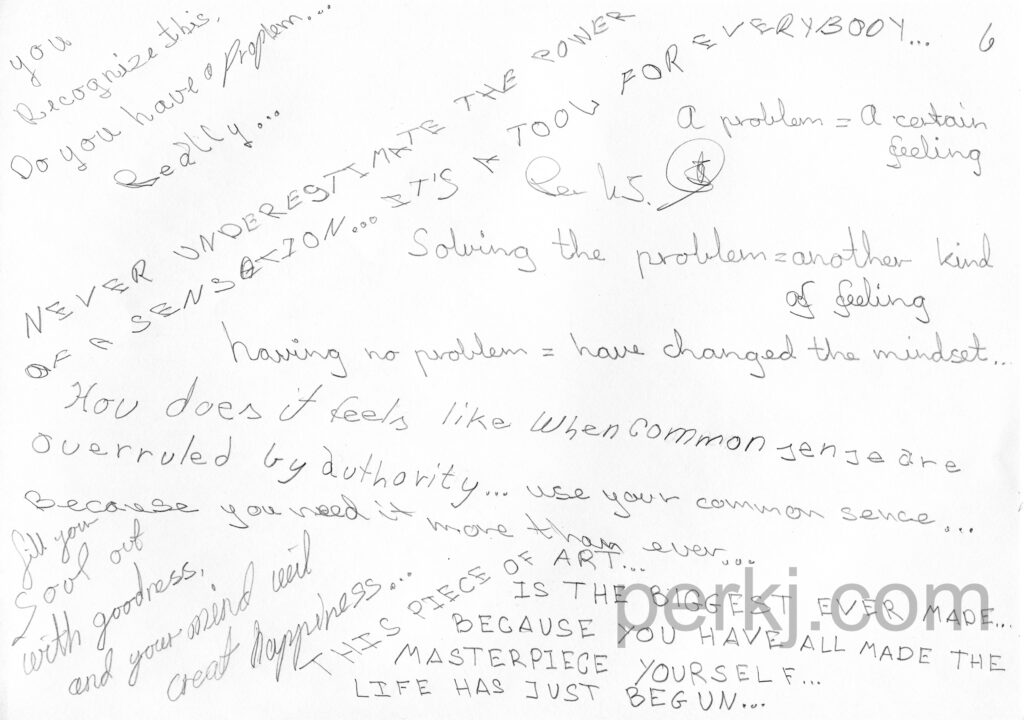 you
Recognize this.
Do you have a problem...
Really...
NEVER UNDERESTIMATE THE POWER
OF A SENSATION... IT'S A TOOL FOR EVERYBODY...
6
A problem = A certain
feeling
Solving the problem = another kind
of feeling
having no problem = have changed the mindset...
How does it feels like When common sense are
overruled by authority... use your common sence...
Because you need it more than ever...
fill your
Sool out
with goodness,
and your mind will
creat happiness...
THIS PIECE OF ART...
IS THE BIGGEST EVER MADE...
BECAUSE YOU HAVE ALL MADE THE
MASTERPIECE YOURSELF...
LIFE HAS JUST BEGUN...
perkj.com